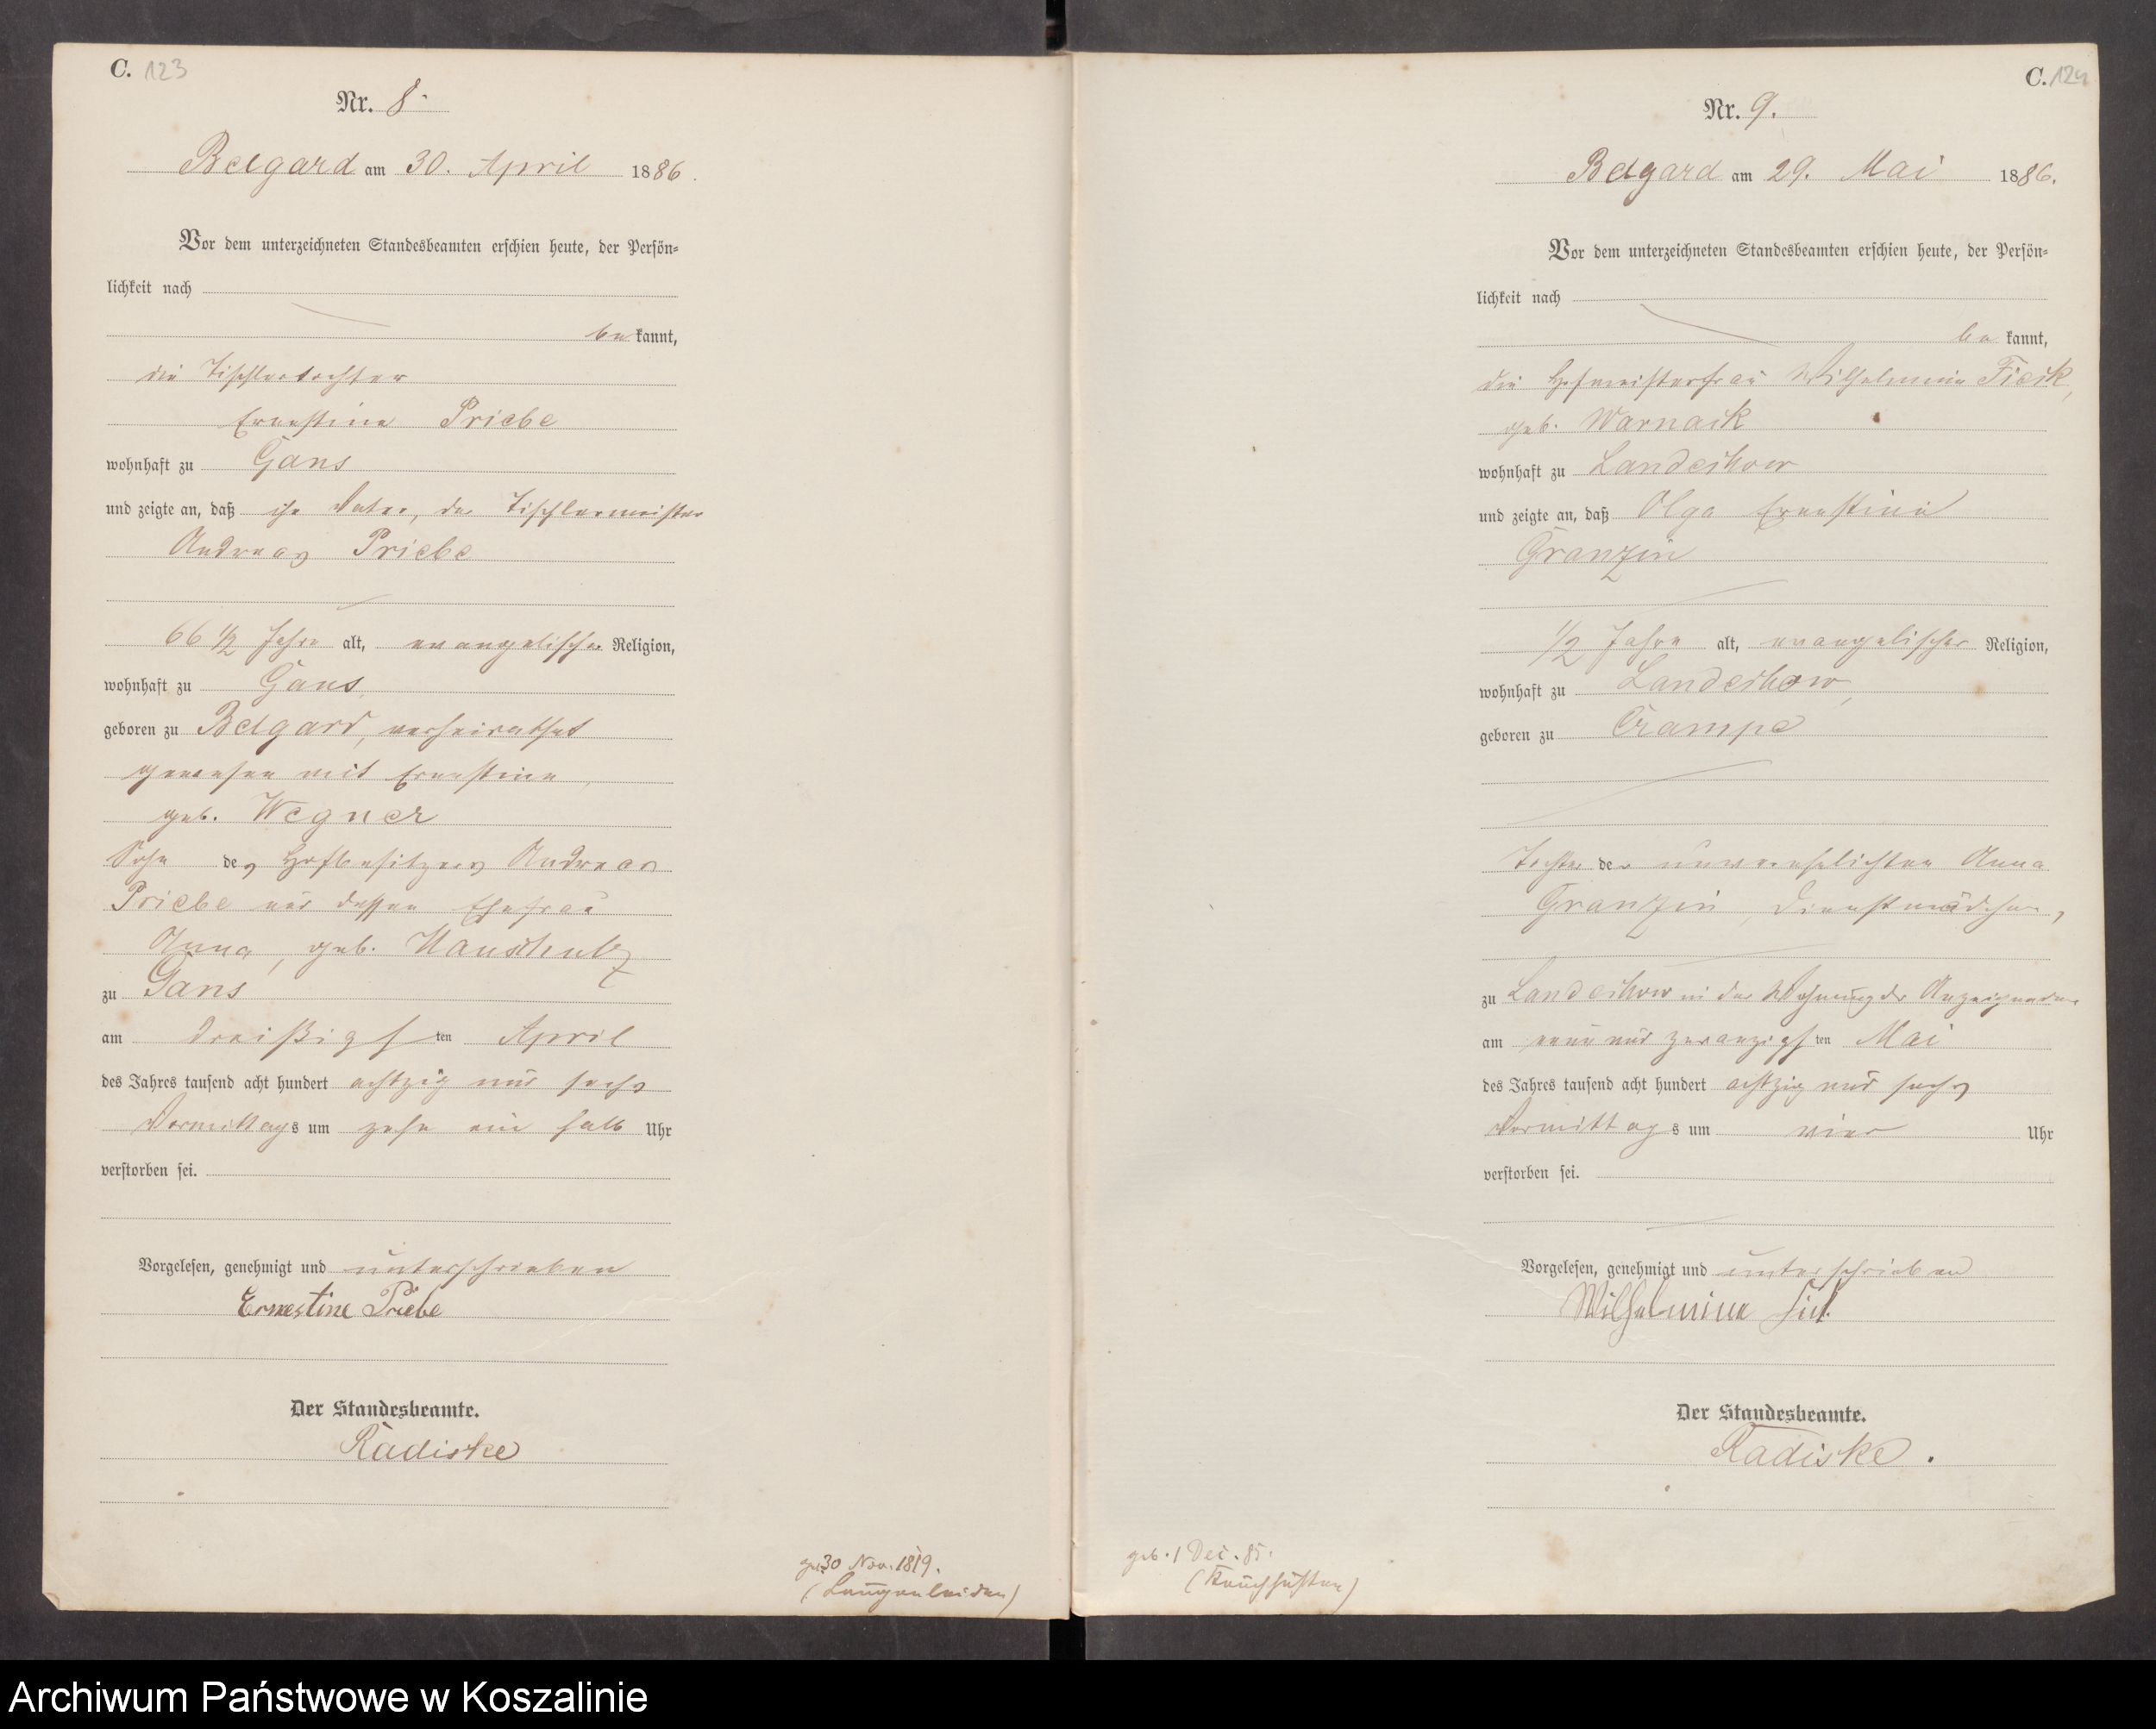 C. 123
Nr. 8.
Belgard am 30. April 1886.
Vor dem unterzeichneten Standesbeamten erschien heute, der Persön-
lichkeit nach
bekannt,
die Tischlertochter
Ernestine Priebe
wohnhaft zu Gans
und zeigte an, daß ihr Vater, der Tischlermeister
Andreas Priebe
66 1/2 Jahre alt, evangelischer Religion,
wohnhaft zu Gans,
geboren zu Belgard, verheirathet
gewesen mit Ernestine,
geb. Wegner
Sohn des Hofbesitzers Andreas
Priebe und dessen Ehefrau
Anna, geb.
zu Gans
am dreißigsten April
des Jahres tausend acht hundert achtzig und sechs
Vormittags um zehn ein halb Uhr
verstorben sei.
Vorgelesen, genehmigt und unterschrieben
Ernestine Priebe
Der Standesbeamte.
Radiske
geb. 30 Nov. 1819.
(Lungenleiden)
C. 124
Nr. 9.
Belgard am 29. Mai 1886.
Vor dem unterzeichneten Standesbeamten erschien heute, der Persön-
lichkeit nach
bekannt,
die Hofmeisterfrau Wilhelmine Fick,
geb. Warnack
wohnhaft zu Landechow
und zeigte an, daß Olga Ernestine
Granzin
1/2 Jahre alt, evangelischer Religion,
wohnhaft zu Landechow,
geboren zu Crampe
Tochter der unverehelichten Anna
Granzin, Dienstmädchen,
zu Landechow in der Wohnung der Anzeigenden
am neun und zwanzigsten Mai
des Jahres tausend acht hundert achtzig und sechs
Vormittags um vier Uhr
verstorben sei.
Vorgelesen, genehmigt und unterschrieben
Wilhelmine Fick.
Der Standesbeamte.
Radiske.
geb. 1 Dec. 85.
(Keuchhusten)
Archiwum Państwowe w Koszalinie